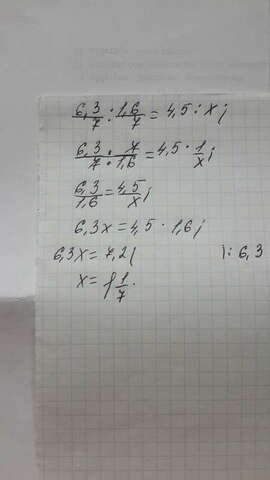 6,3/7 : 1,6/7 = 4,5 : x;
6,3/7 · 7/1,6 = 4,5 · 1/x;
6,3/1,6 = 4,5/x;
6,3x = 4,5 · 1,6;
6,3x = 7,2 | |: 6,3
x = 1 1/7.